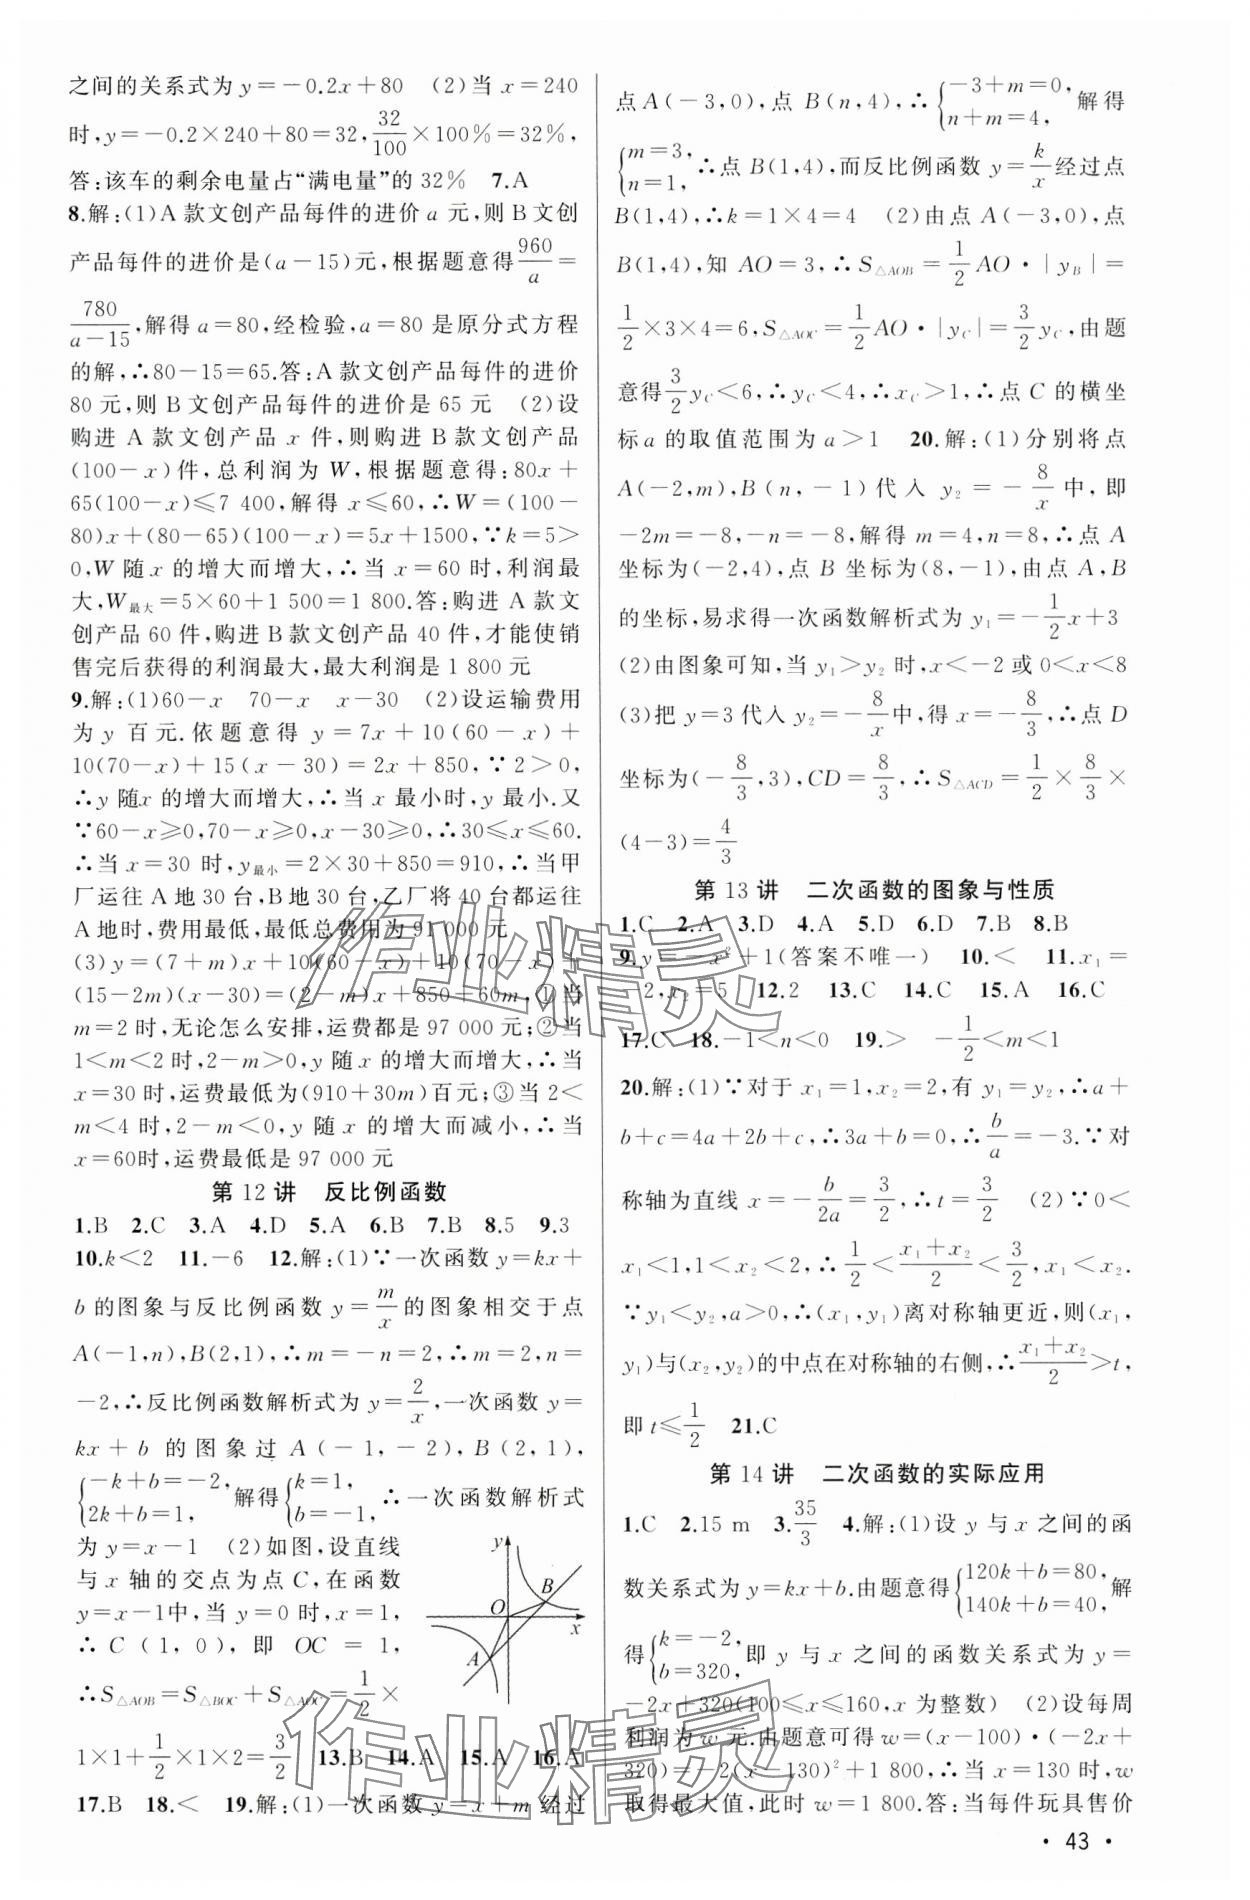 之间的关系式为 y=－0.2x+80　(2)当 x=240
时,y=－0.2×240+80=32,32/100×100%=32%,
答:该车的剩余电量占“满电量”的 32%　7.A
8.解:(1)A 款文创产品每件的进价 a 元,则 B 文创
产品每件的进价是(a－15)元,根据题意得960/a=
780/(a－15),解得 a=80,经检验,a=80 是原分式方程
的解,∴80－15=65.答:A 款文创产品每件的进价
80 元,则 B 文创产品每件的进价是 65 元　(2)设
购进 A 款文创产品 x 件,则购进 B 款文创产品
(100－x)件,总利润为 W,根据题意得:80x+
65(100－x)≤7 400,解得 x≤60,∴W=(100－
80)x+(80－65)(100－x)=5x+1500,∵k=5>
0,W 随 x 的增大而增大,∴当 x=60 时,利润最
大,W最大=5×60+1 500=1 800.答:购进 A 款文
创产品 60 件,购进 B 款文创产品 40 件,才能使销
售完后获得的利润最大,最大利润是 1 800 元
9.解:(1)60－x　70－x　x－30　(2)设运输费用
为 y 百元.依题意得 y=7x+10(60－x)+
10(70－x)+15(x－30)=2x+850,∵2>0,
∴y 随x 的增大而增大,∴当 x 最小时,y 最小.又
∵60－x≥0,70－x≥0,x－30≥0,∴30≤x≤60.
∴当 x=30 时,y最小=2×30+850=910,∴当甲
厂运往 A 地 30 台,B地 30 台,乙厂将 40 台都运往
A 地时,费用最低,最低总费用为 91 000 元
(3)y=(7+m)x+10(60－x)+10(70－x)+
(15－2m)(x－30)=(2－m)x+850+60m,①当
m=2 时,无论怎么安排,运费都是 97 000 元;②当
1<m<2 时,2－m>0,y 随 x 的增大而增大,∴当
x=30 时,运费最低为(910+30m)百元;③当 2<
m<4 时,2－m<0,y 随 x 的增大而减小,∴当
x=60时,运费最低是 97 000 元
第 12 讲　反比例函数
1.B　2.C　3.A　4.D　5.A　6.B　7.B　8.5　9.3
10.k<2　11.－6　12.解:(1)∵一次函数 y=kx+
b 的图象与反比例函数 y=m/x 的图象相交于点
A(－1,n),B(2,1),∴m=－n=2,∴m=2,n=
－2,∴反比例函数解析式为 y=2/x,一次函数 y=
kx+b 的图象过 A(－1,－2),B(2,1),
{－k+b=－2, 2k+b=1, 解得{k=1, b=－1, ∴一次函数解析式
为 y=x－1　(2)如图,设直线
与 x 轴的交点为点 C,在函数
y=x－1中,当 y=0 时,x=1,
∴C(1,0),即 OC=1,
∴S△AOB=S△BOC+S△AOC=1/2×
1×1+1/2×1×2=3/2　13.B　14.A　15.A　16.A
17.B　18.<　19.解:(1)一次函数 y=x+m 经过
y
B
O
x
A
点 A(－3,0),点 B(n,4),∴{－3+m=0, n+m=4, 解得
{m=3, n=1, ∴点 B(1,4),而反比例函数 y=k/x经过点
B(1,4),∴k=1×4=4　(2)由点 A(－3,0),点
B(1,4),知 AO=3,∴S△AOB=1/2AO·|yB|=
1/2×3×4=6,S△AOC=1/2AO·|yC|=3/2yC,由题
意得3/2yC<6,∴yC<4,∴xC>1,∴点 C 的横坐
标a 的取值范围为 a>1　20.解:(1)分别将点
A(－2,m),B(n,－1)代入 y2=－8/x中,即
－2m=－8,－n=－8,解得 m=4,n=8,∴点 A
坐标为(－2,4),点 B 坐标为(8,－1),由点 A,B
的坐标,易求得一次函数解析式为 y1=－1/2x+3
(2)由图象可知,当 y1>y2 时,x<－2 或 0<x<8
(3)把 y=3 代入 y2=－8/x中,得 x=－8/3,∴点 D
坐标为(－8/3,3),CD=8/3,∴S△ACD=1/2×8/3×
(4－3)=4/3
第 13 讲　二次函数的图象与性质
1.C　2.A　3.D　4.A　5.D　6.D　7.B　8.B
9.y=－x²+1(答案不唯一)　10.<　11.x1=
－2,x2=5　12.2　13.C　14.C　15.A　16.C
17.C　18.－1<n<0　19.>　－1/2<m<1
20.解:(1)∵对于 x1=1,x2=2,有 y1=y2,∴a+
b+c=4a+2b+c,∴3a+b=0,∴b/a=－3.∵对
称轴为直线 x=－b/2a=3/2,∴t=3/2　(2)∵0<
x1<1,1<x2<2,∴1/2<(x1+x2)/2<3/2,x1<x2.
∵y1<y2,a>0,∴(x1,y1)离对称轴更近,则(x1,
y1)与(x2,y2)的中点在对称轴的右侧,∴(x1+x2)/2>t,
即 t≤1/2　21.C
第 14 讲　二次函数的实际应用
1.C　2.15 m　3.35/3　4.解:(1)设 y 与 x 之间的函
数关系式为 y=kx+b.由题意得{120k+b=80, 140k+b=40, 解
得{k=－2, b=320, 即 y 与 x 之间的函数关系式为 y=
－2x+320(100≤x≤160,x 为整数)　(2)设每周
利润为 w 元.由题意可得 w=(x－100)·(－2x+
320)=－2(x－130)²+1 800,∴当 x=130 时,w
取得最大值,此时 w=1 800.答:当每件玩具售价
· 43 ·
作业精灵
作业精灵